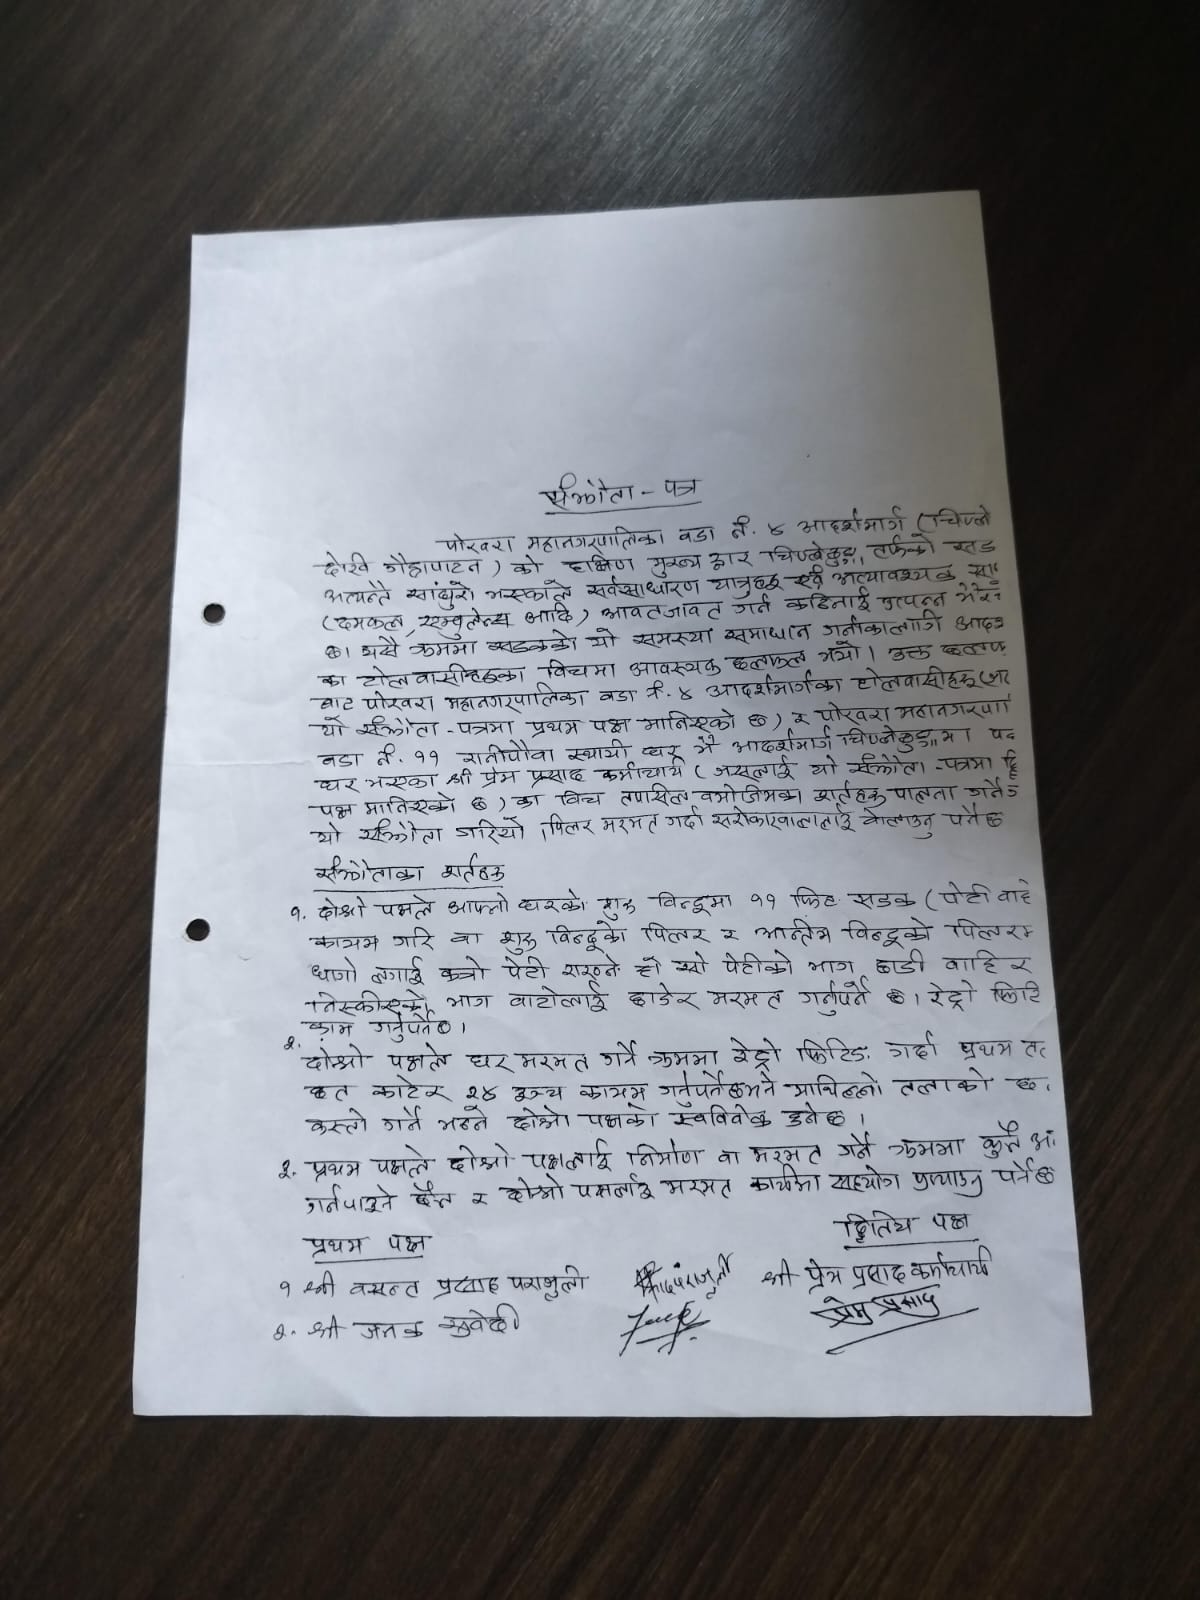 संझौता - पत्र
पोखरा महानगरपालिका वडा नं. ४ आदर्शमार्ग (चिप्ले
देखि गौह्रापाटन) को दक्षिण मुख्य द्वार चिप्लेढुङ्गा तर्फको सडक
अत्यन्तै सांघुरो भएकाले सर्वसाधारण यात्रुहरु एवं अत्यावश्यक सवा
(दमकल, एम्बुलेन्स आदि) आवतजावत गर्न कठिनाई उत्पन्न भैरहे
छ। यसै क्रममा सडकको यो समस्या समाधान गर्नाकालागि आदर्श
का टोलवासीहरुका विचमा आवस्यक छलफल भयो। उक्त छलफ
बाट पोखरा महानगरपालिका वडा नं. ४ आदर्शमार्गका टोलवासीहरु (जस
यो संझौता - पत्रमा प्रथम पक्ष मानिएको छ) र पोखरा महानगरपालि
वडा नं. ११ रानीपौवा स्थायी घर भै आदर्शमार्ग चिप्लेढुङ्गामा
घर भएका श्री प्रेम प्रसाद कर्माचार्य (जसलाई यो संझौता - पत्रमा द्वि
पक्ष मानिएको छ) का विच तपसिल बमोजिमका शर्तहरु पालना गर्नेग
यो संझौता गरियो। पिलर मरमत गर्दा सरोकारवालालाई बोलाउनु पर्नेछ
संझौताका शर्तहरु
१. दोश्रो पक्षले आफ्नो घरको शुरु विन्दुमा ११ फिट सडक (पेटी वाहे
कायम गरि वा शुरु विन्दुको पिलर र अन्तिम विन्दुको पिलरम
धागो लगाई कत्रो पेटी राख्ने हो सो पेटीको भाग छाडी वाहिर
निस्कीएको भाग वाटोलाई छाडेर मरमत गर्नुपर्ने छ। रेट्रो फिटि
काम गर्नुपर्नेछ।
२. दोश्रो पक्षले घर मरमत गर्ने क्रममा रेट्रो फिटिङ गर्दा प्रथम तल
छत काटेर २४ इञ्च कायम गर्नुपर्नेछ भने माथिल्लो तलाको छ
कस्तो गर्ने भन्ने दोश्रो पक्षको स्वविवेक हुनेछ।
३. प्रथम पक्षले दोश्रो पक्षलाई निर्माण वा मरमत गर्ने क्रममा कुनै अ
गर्नपाउने छैन र दोश्रो पक्षलाई मरमत कार्यमा सहयोग पुर्‍याउनु पर्नेछ
प्रथम पक्ष द्वितिय पक्ष
१ श्री वसन्त प्रसाद पराजुली श्री प्रेम प्रसाद कर्माचार्य
२. श्री जनक सुवेदी प्रेम प्रसाद